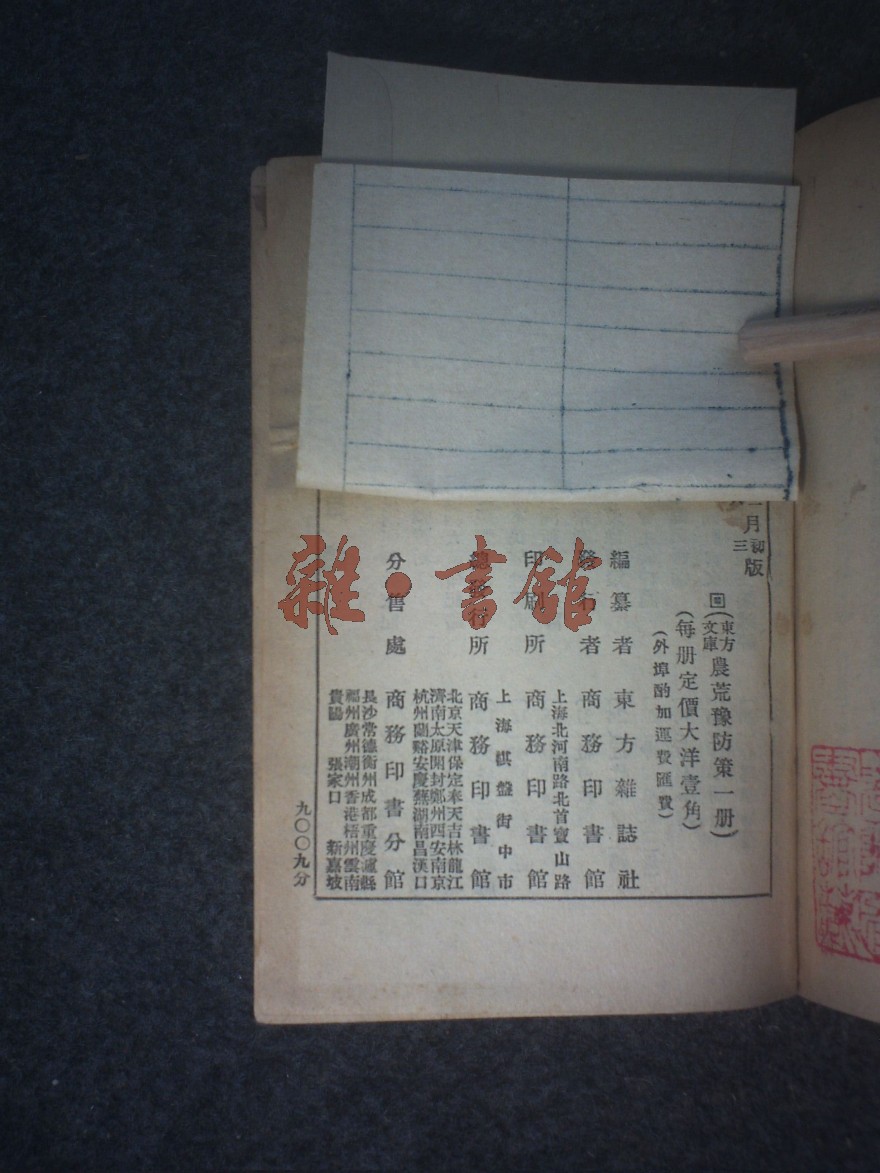 二月初版
三
(東方文庫)農荒豫防策一册)
(每册定價大洋壹角)
(外埠酌加運費匯費)
編纂者 東方雜誌社
發行者 商務印書館
上海北河南路北首寶山路
印刷所 商務印書館
上海棋盤街中市
總發行所 商務印書館
分售處 商務印書分館
北京天津保定奉天吉林龍江
濟南太原開封鄭州西安南京
杭州蘭谿安慶蕪湖南昌漢口
長沙常德衡州成都重慶瀘縣
福州廣州潮州香港梧州雲南
貴陽 張家口 新嘉坡
九〇〇九分
雜·書館